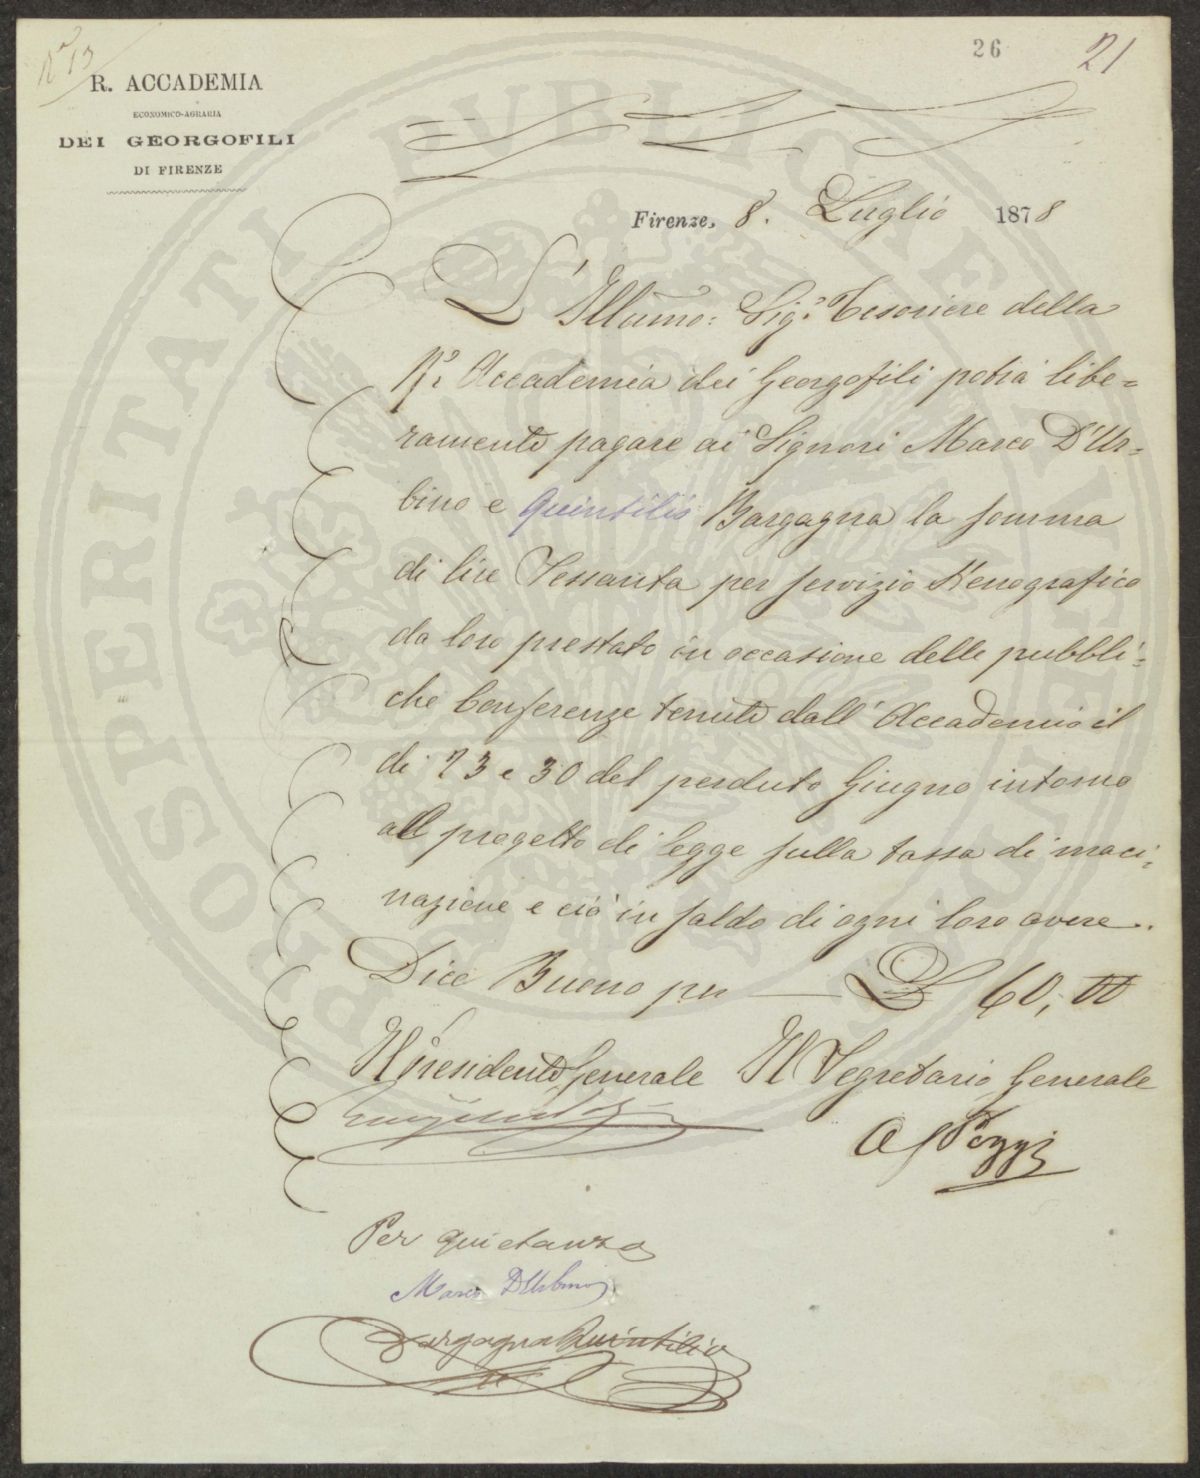 N° 13
26
21
R. ACCADEMIA
ECONOMICO-AGRARIA
DEI GEORGOFILI
DI FIRENZE
Firenze, 8. Luglio 1878
L'Illumo: Sigr. Tesoriere della
Ra. Accademia dei Georgofili potrà libe=
ramente pagare ai Signori Marco D'Ur=
bino e Quintilio Bargagna la somma
di lire Sessanta per servizio stenografico
da loro prestato in occasione delle pubbli=
che Conferenze tenute dall'Accademia il
dì 23 e 30 del perduto Giugno intorno
all progetto di legge sulla tassa di maci=
nazione e ciò in saldo di ogni loro avere.
Dice Buono per — L 60, 00
Il Presidente Generale Il Segretario Generale
A Pozzi
Per quietanza
Marco D'Urbino
Bargagna Quintilio
PROSPERITATI PUBLICAE AUGENDAE